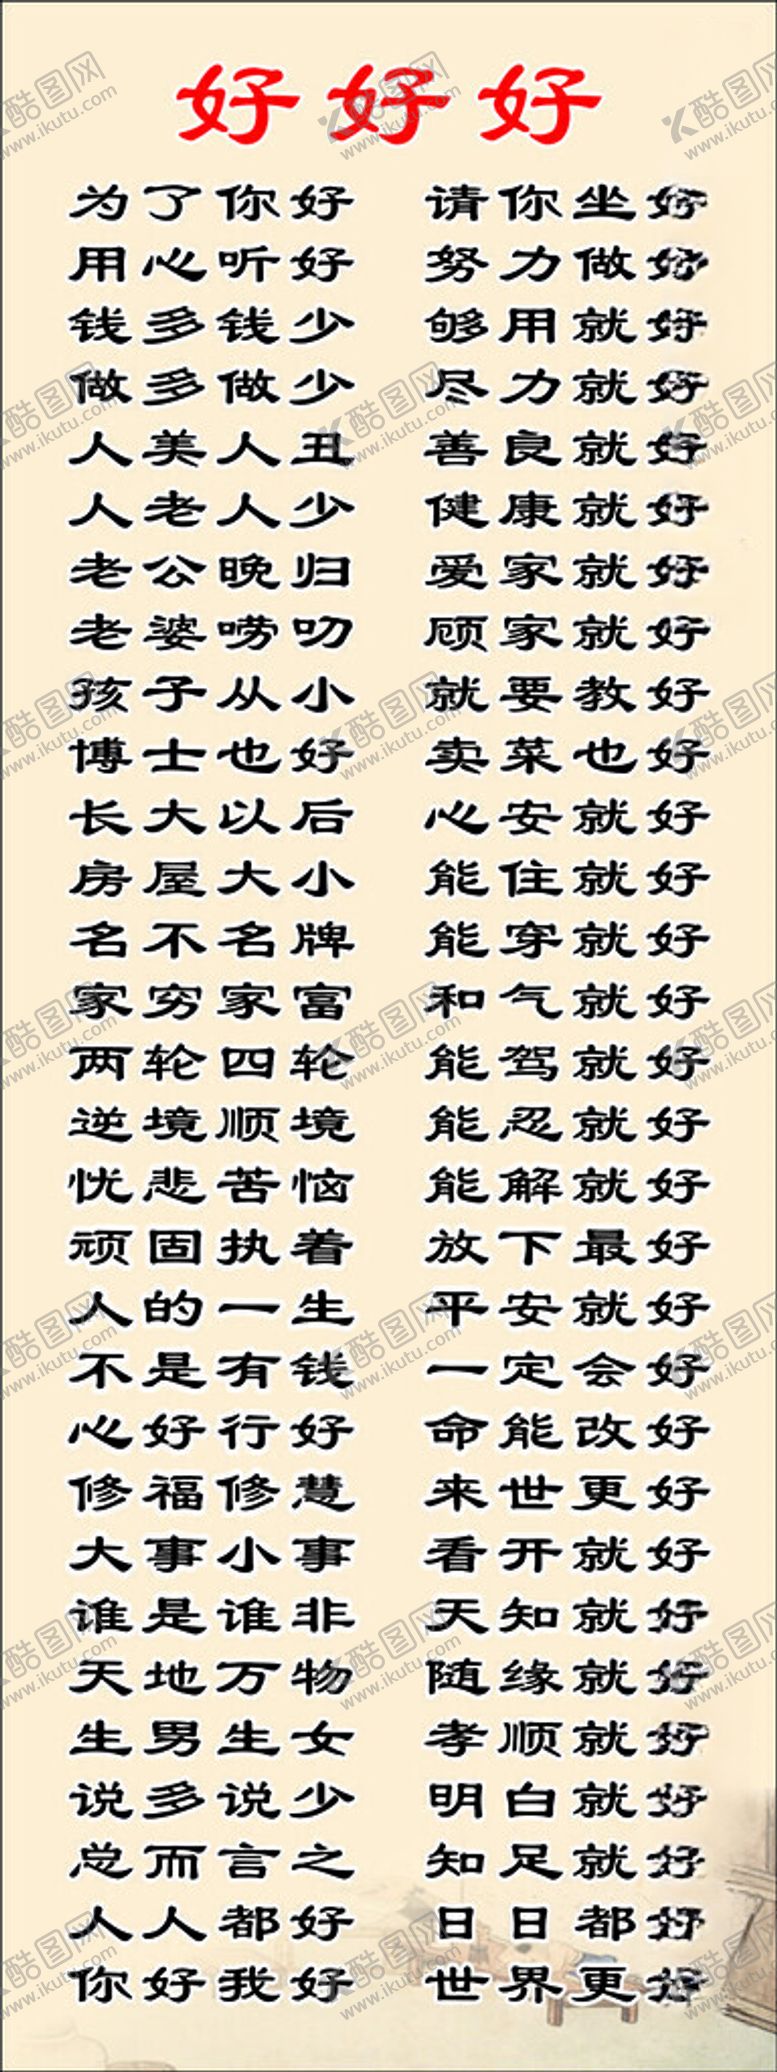 好好好
为了你好 请你坐好
用心听好 努力做好
钱多钱少 够用就好
做多做少 尽力就好
人美人丑 善良就好
人老人少 健康就好
老公晚归 爱家就好
老婆唠叨 顾家就好
孩子从小 就要教好
博士也好 卖菜也好
长大以后 心安就好
房屋大小 能住就好
名不名牌 能穿就好
家穷家富 和气就好
两轮四轮 能驾就好
逆境顺境 能忍就好
忧悲苦恼 能解就好
顽固执着 放下最好
人的一生 平安就好
不是有钱 一定会好
心好行好 命能改好
修福修慧 来世更好
大事小事 看开就好
谁是谁非 天知就好
天地万物 随缘就好
生男生女 孝顺就好
说多说少 明白就好
总而言之 知足就好
人人都好 日日都好
你好我好 世界更好
酷图网
www.ikutu.com